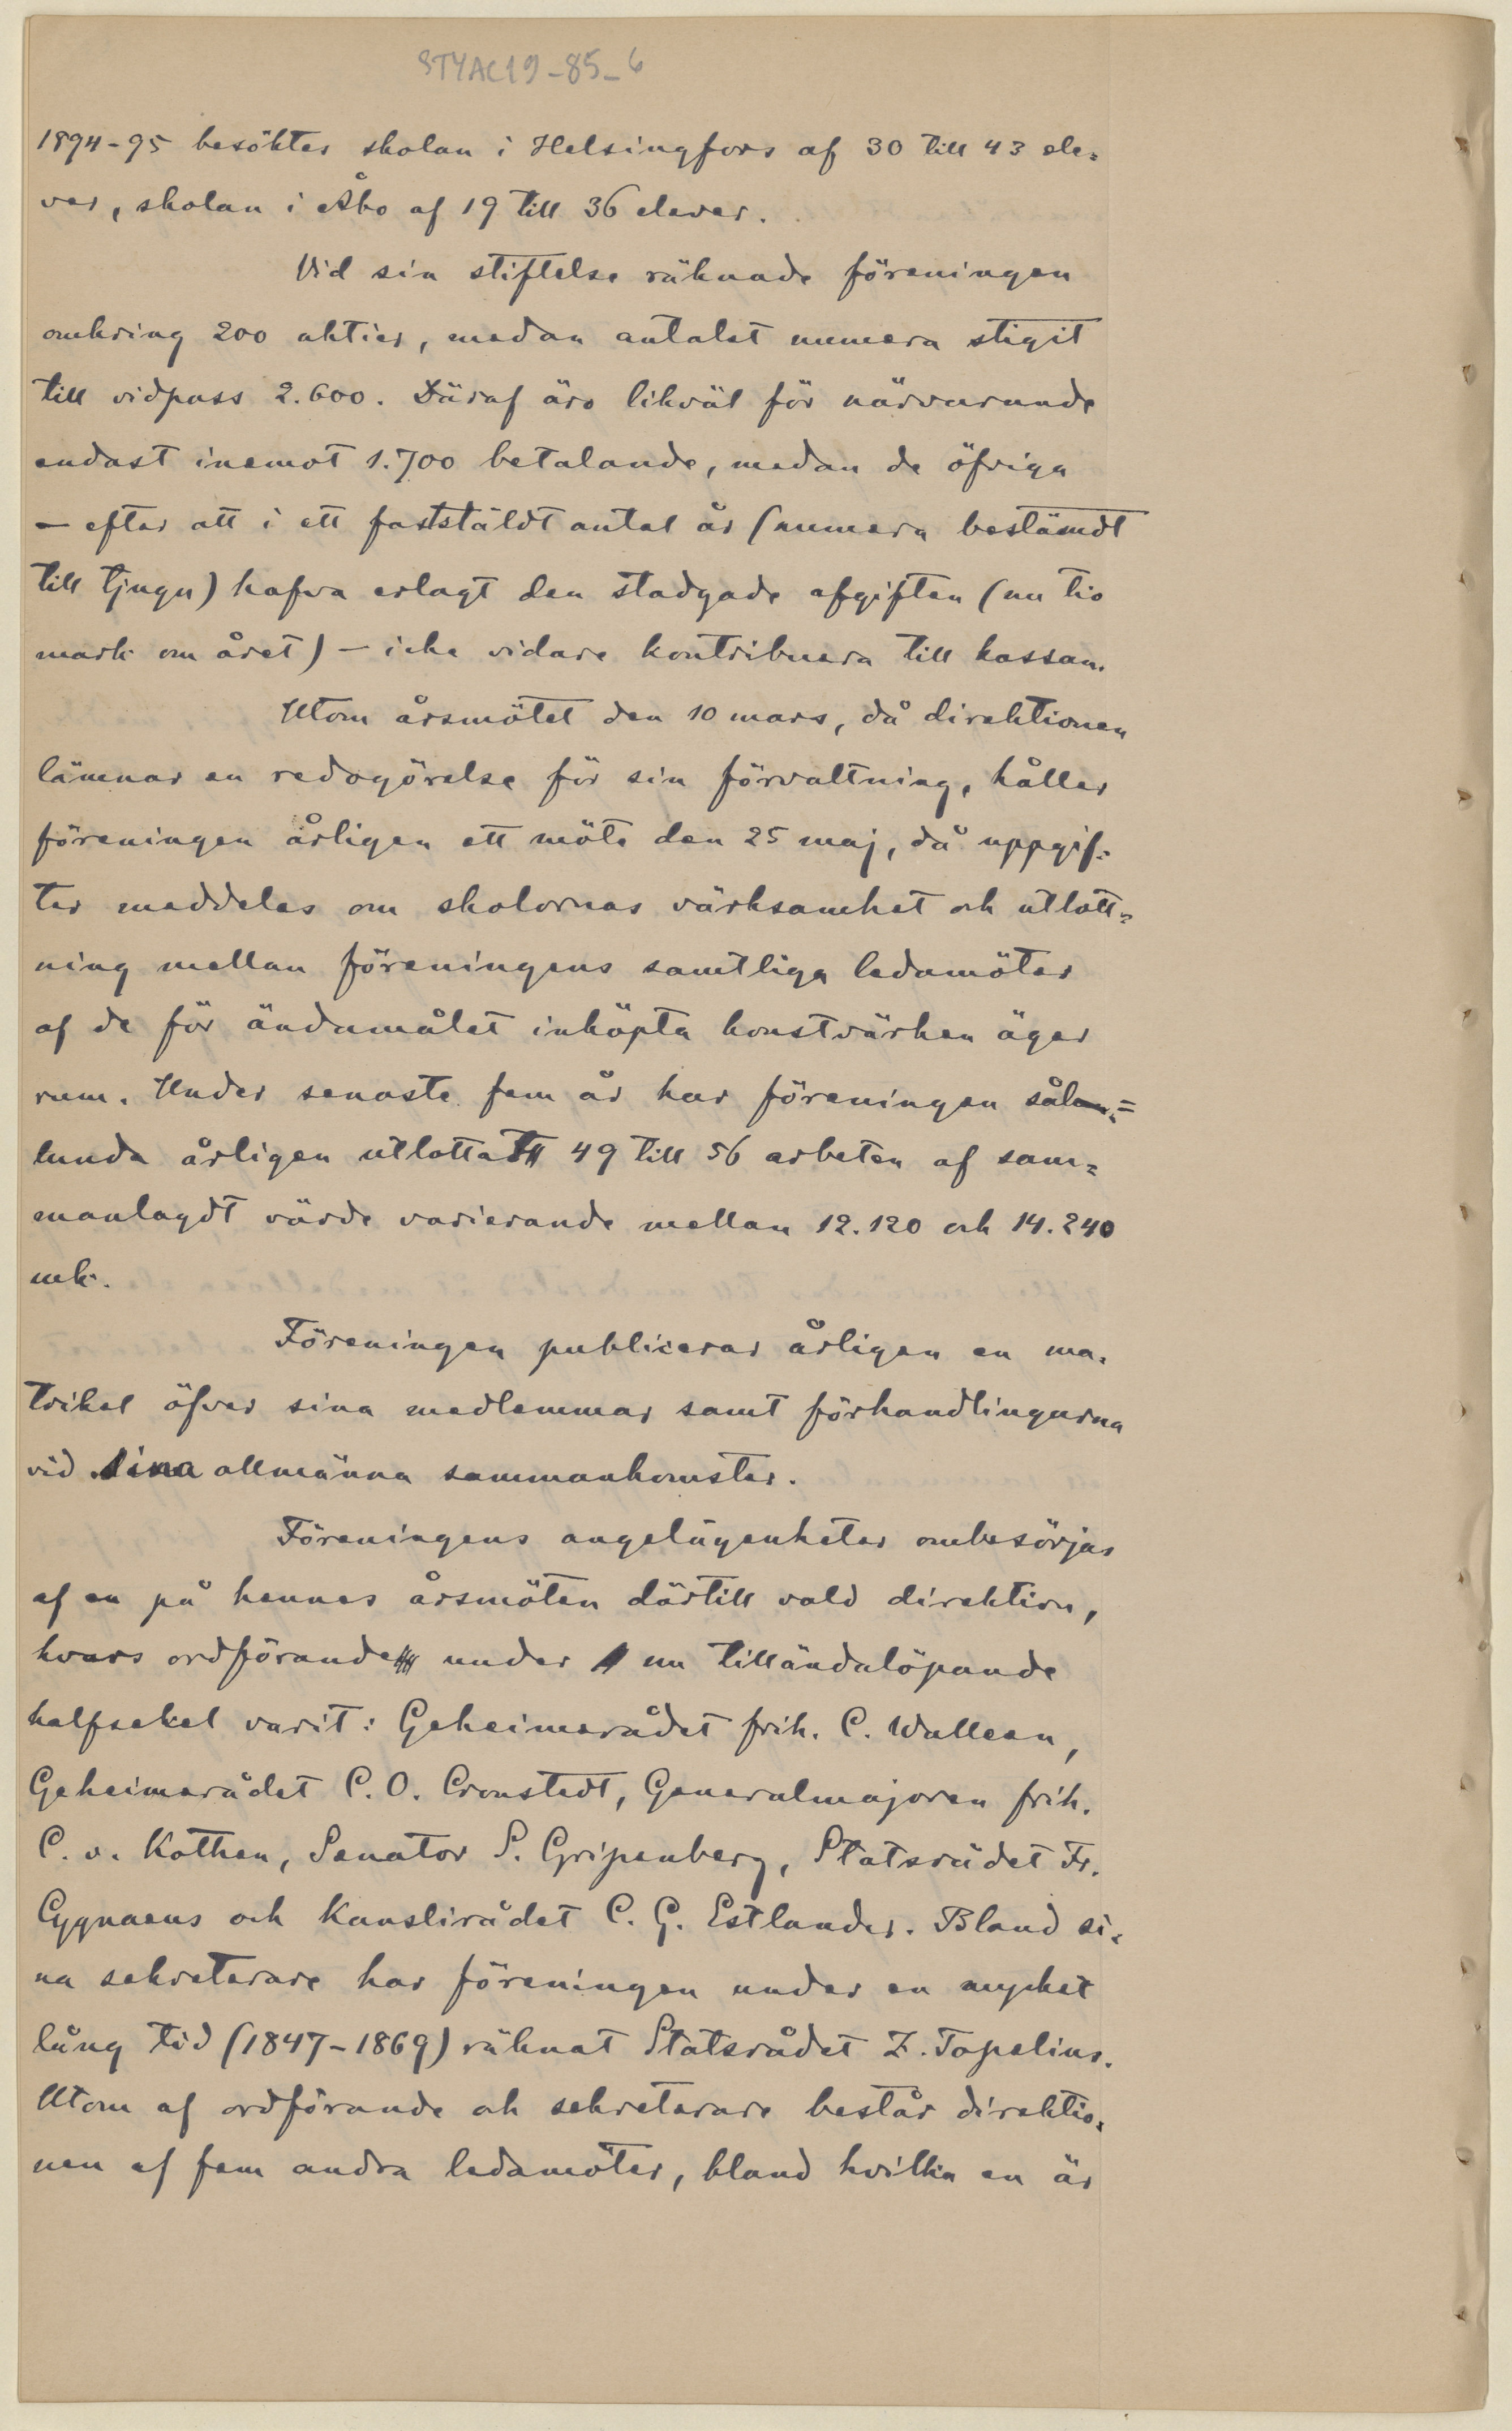 STYAC19-85-6
1894-95 besöktes skolan i Helsingfors af 30 till 43 ele=
ver, skolan i Åbo af 19 till 36 elever.
Vid sin stiftelse räknade föreningen
omkring 200 aktier, medan antalet numera stigit
till vidpass 2.600. Däraf äro likväl för närvarande
endast inemot 1.700 betalande, medan de öfriga
— efter att i ett fastställdt antal år (numera bestämdt
till tjugu) hafva erlagt den stadgade afgiften (nu tio
mark om året) — icke vidare kontribuera till kassan.
Utom årsmötet den 10 mars, då direktionen
lämnar en redogörelse för sin förvaltning, håller
föreningen årligen ett möte den 25 maj, då uppgif=
ter meddelas om skolornas värksamhet och utlott=
ning mellan föreningens samtliga ledamöter
af de för ändamålet inköpta konstvärken äger
rum. Under senaste fem år har föreningen så=
lunda årligen utlottat 49 till 56 arbeten af sam=
manlagdt värde varierande mellan 12.120 och 14.240
mk.
Föreningen publicerar årligen en ma=
trikel öfver sina medlemmar samt förhandlingarna
vid sina allmänna sammankomster.
Föreningens angelägenheter ombesörjas
af en på hennes årsmöten därtill vald direktion,
hvars ordförande under nu tilländalöpande
halfsekel varit: Geheimerådet frih. C. Walleen,
Geheimerådet C. O. Cronstedt, Generalmajoren frih.
C. v. Kothen, Senator S. Gripenberg, Statsrådet Fr.
Cygnaeus och Kanslirådet C. G. Estlander. Bland si=
na sekreterare har föreningen under en mycket
lång tid (1847-1869) räknat Statsrådet Z. Topelius.
Utom af ordförande och sekreterare består direktio=
nen af fem andra ledamöter, bland hvilka en är